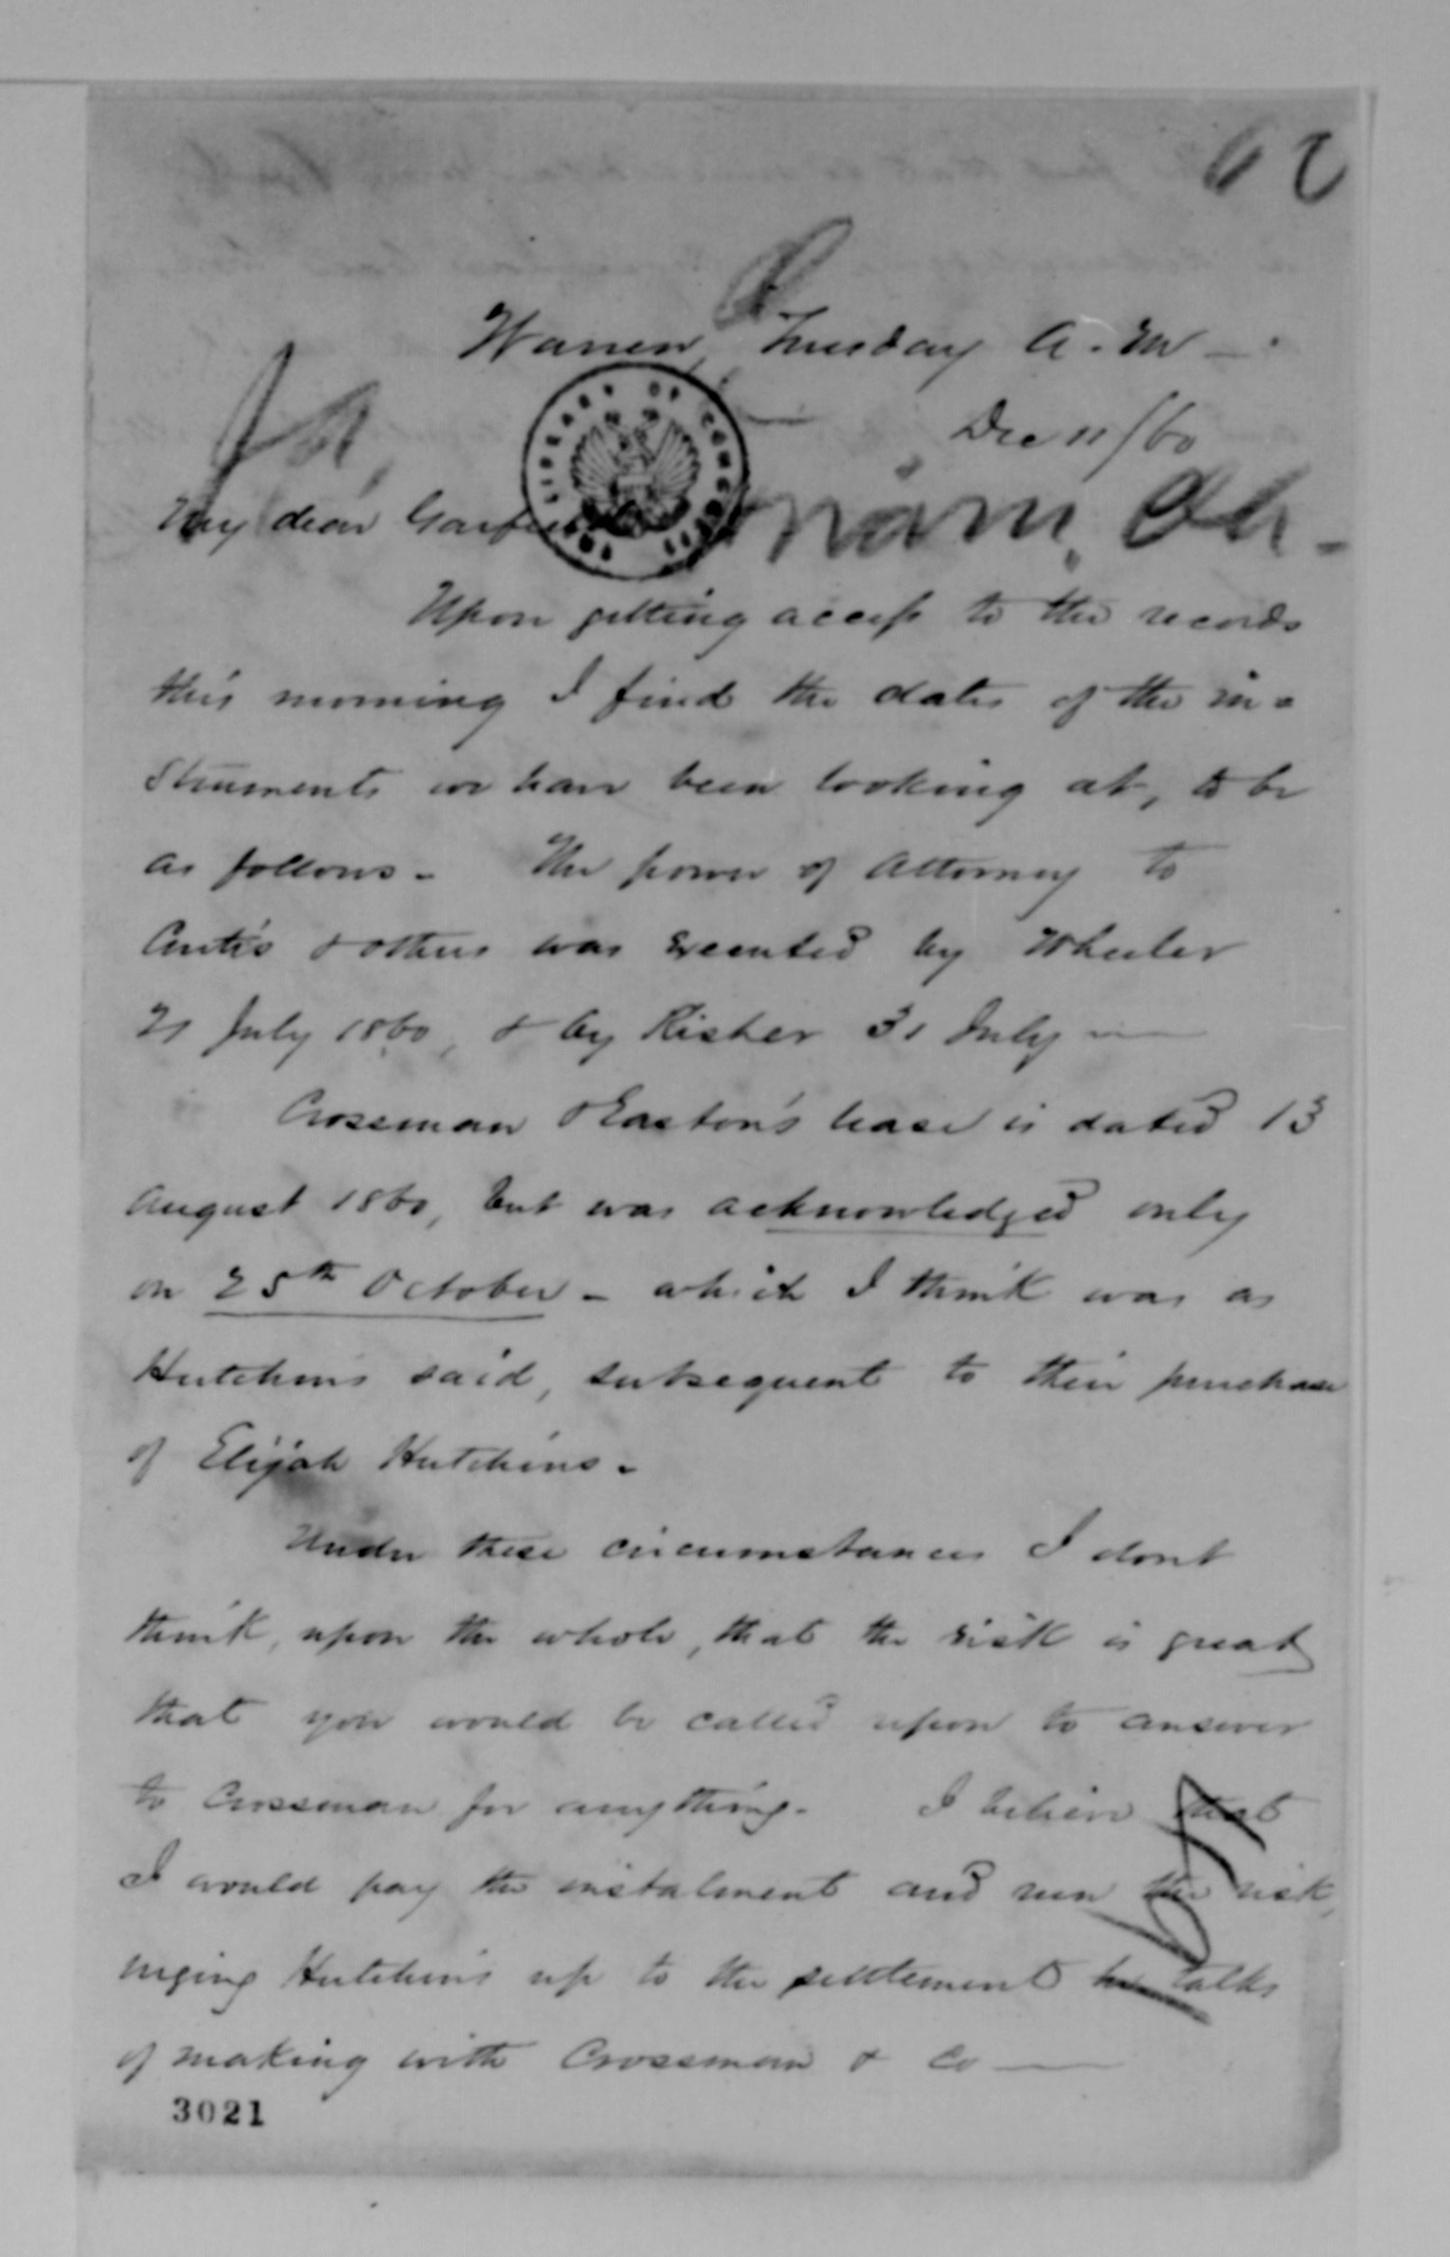 62
Warren, Tuesday A.M.
Dec 11/60
LIBRARY OF CONGRESS
My dear Garfield
Upon getting access to the records
this morning I find the dates of the in=
struments we have been looking at, to be
as follows - The power of Attorney to
Curtis & others was executed by Wheeler
21 July 1860, & by Risher 31 July —
Crossman & Easton's lease is dated 13
August 1860, but was acknowledged only
on 25th October - which I think was as
Hutchins said, subsequent to their purchase
of Elijah Hutchins -
Under these circumstances I dont
think, upon the whole, that the risk is great
that you would be called upon to answer
to Crossman for anything - I believe that
I would pay the instalment and run the risk,
urging Hutchins up to the settlement he talks
of making with Crossman & Co —
3021